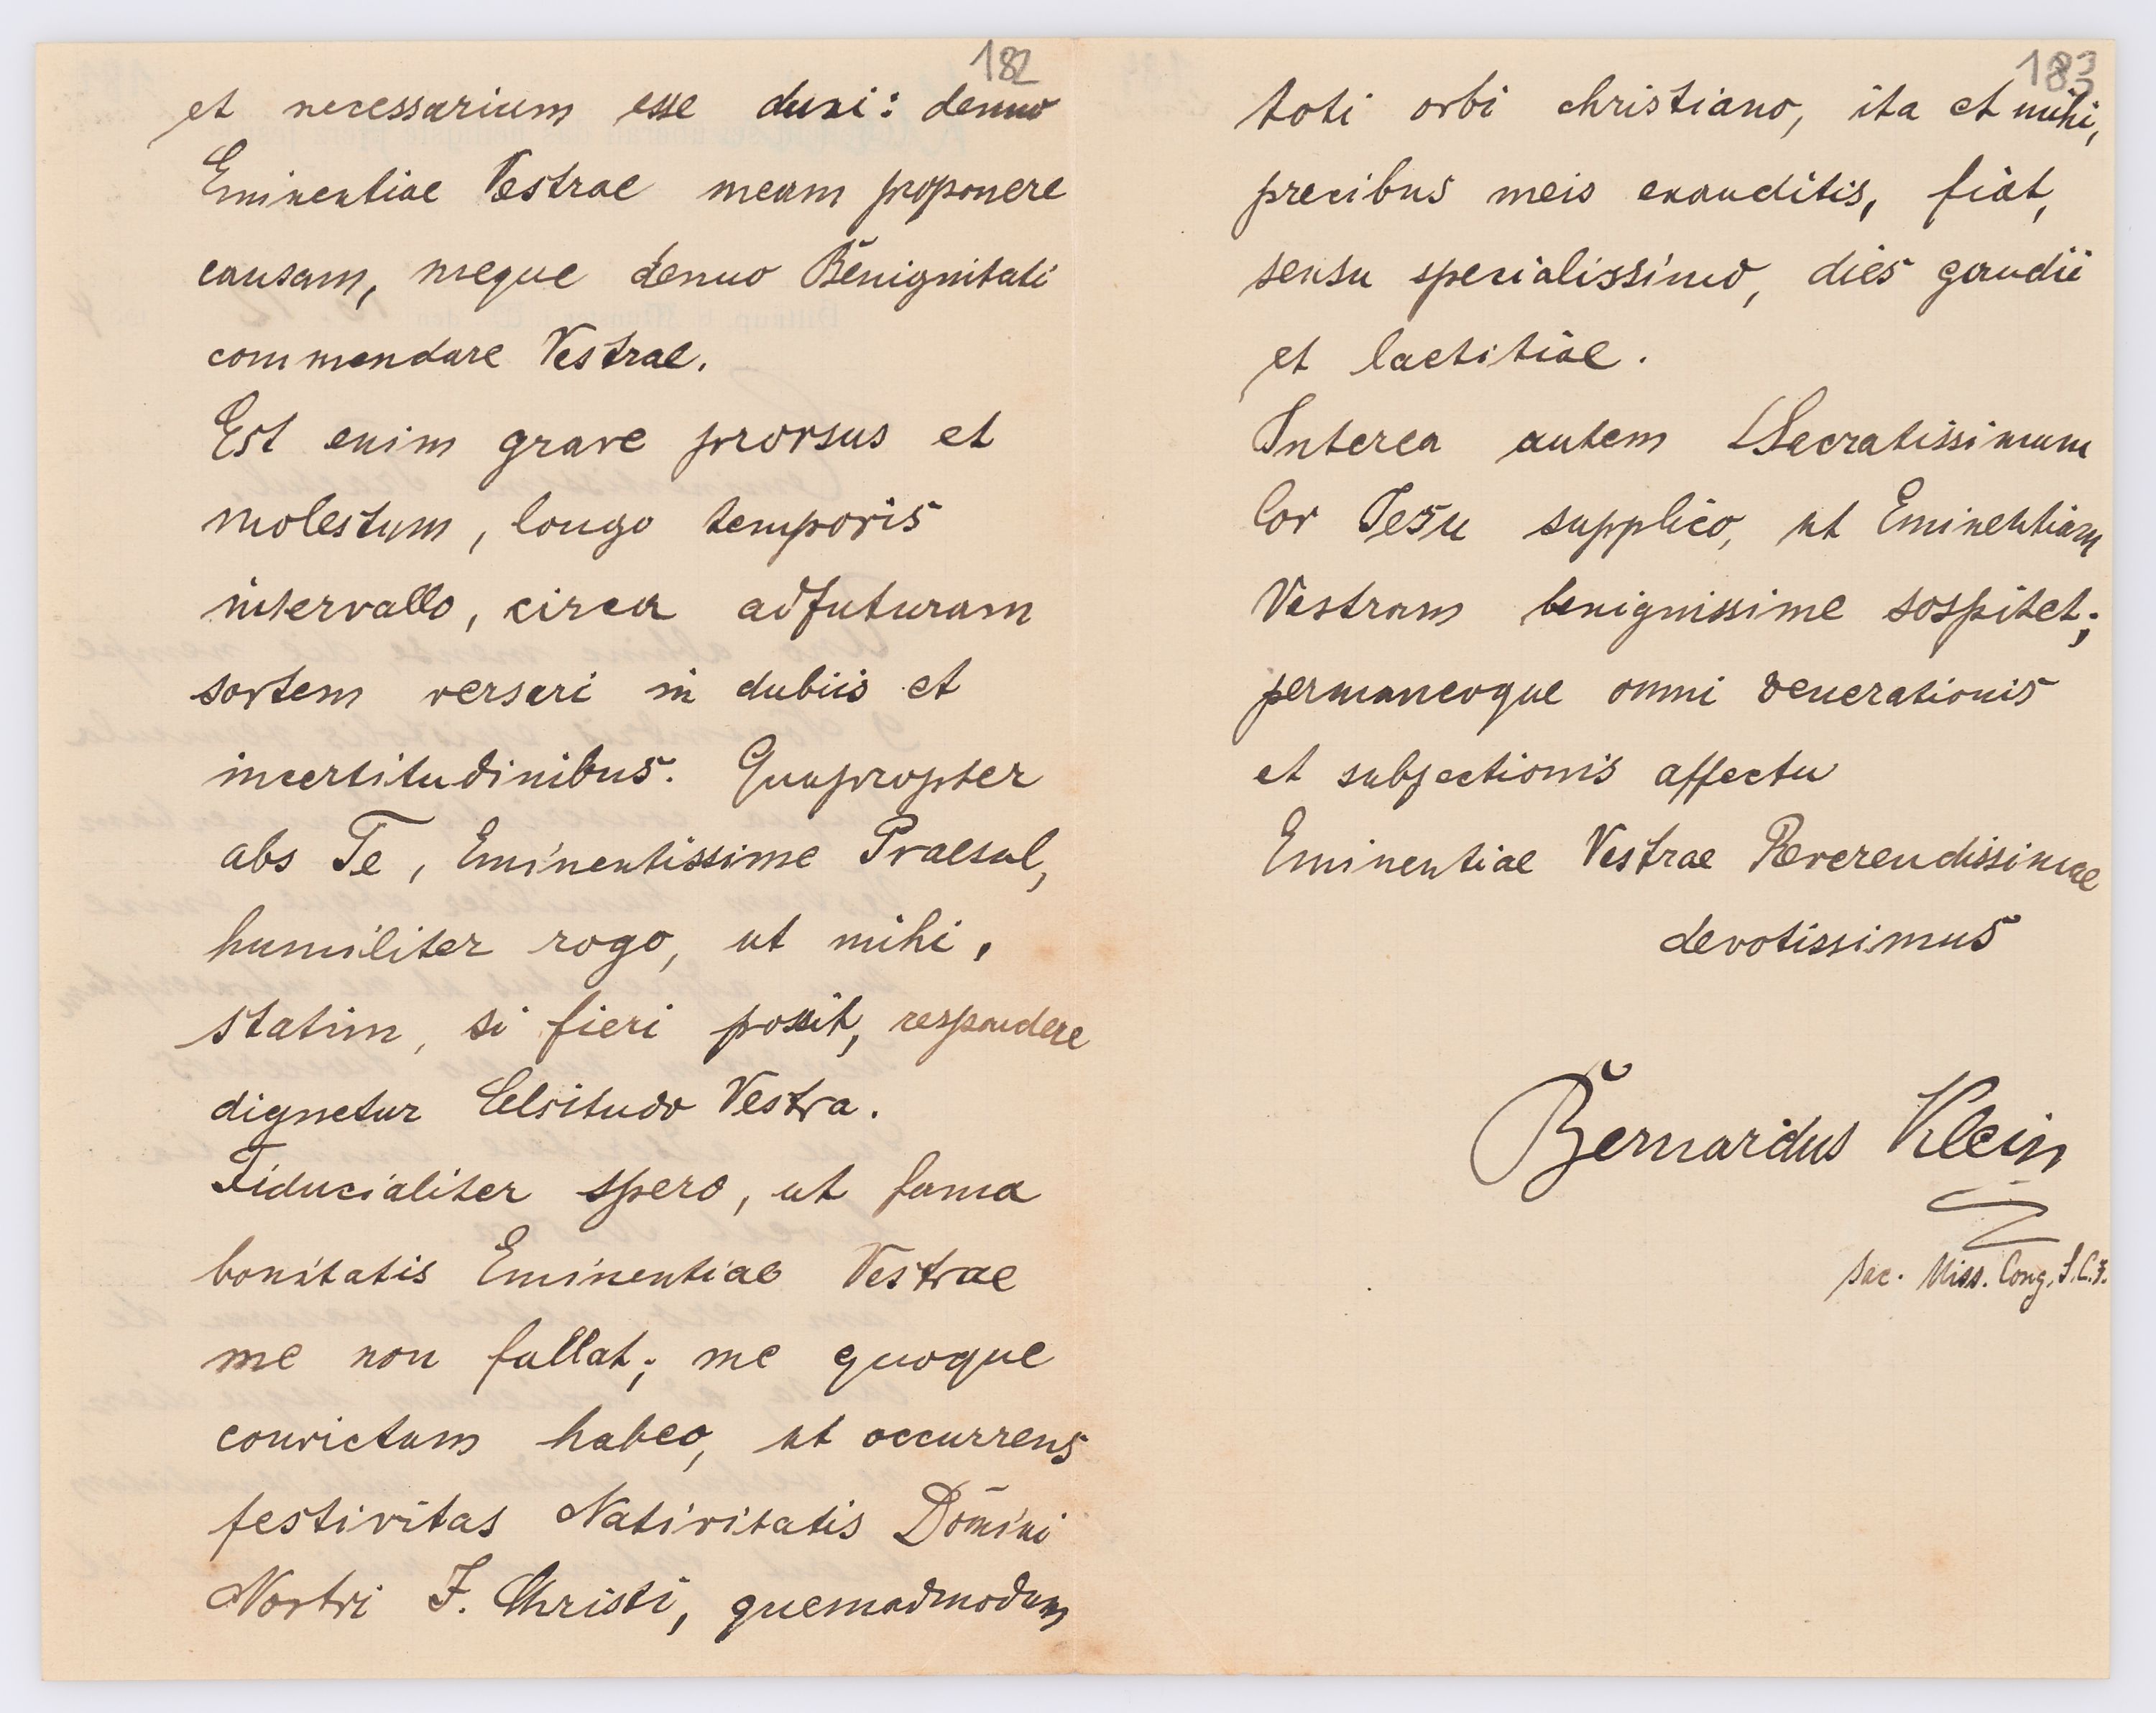 182
et necessarium esse duxi: denuo
Eminentiae Vestrae meam proponere
causam, meque denuo Benignitati
commendare Vestrae.
Est enim grave prorsus et
molestum, longo temporis
intervallo, circa adfuturam
sortem versari in dubiis et
incertitudinibus. Quapropter
abs Te, Eminentissime Praesul,
humiliter rogo, ut mihi,
statim, si fieri possit, respondere
dignetur Celsitudo Vestra.
Fiducialiter spero, ut fama
bonitatis Eminentiae Vestrae
me non fallat; me quoque
convictum habeo, ut occurrens
festivitas Nativitatis Domini
Nostri J. Christi, quemadmodum
183
toti orbi christiano, ita et mihi,
precibus meis exauditis, fiat,
sensu specialissimo, dies gaudii
et laetitiae.
Interea autem SSacratissimum
Cor Jesu supplico, ut Eminentiam
Vestram benignissime sospitet;
permaneoque omni venerationis
et subjectionis affectu
Eminentiae Vestrae Reverendissimae
devotissimus
Bernardus Klein
Sac. Miss. Cong. S.C.J.